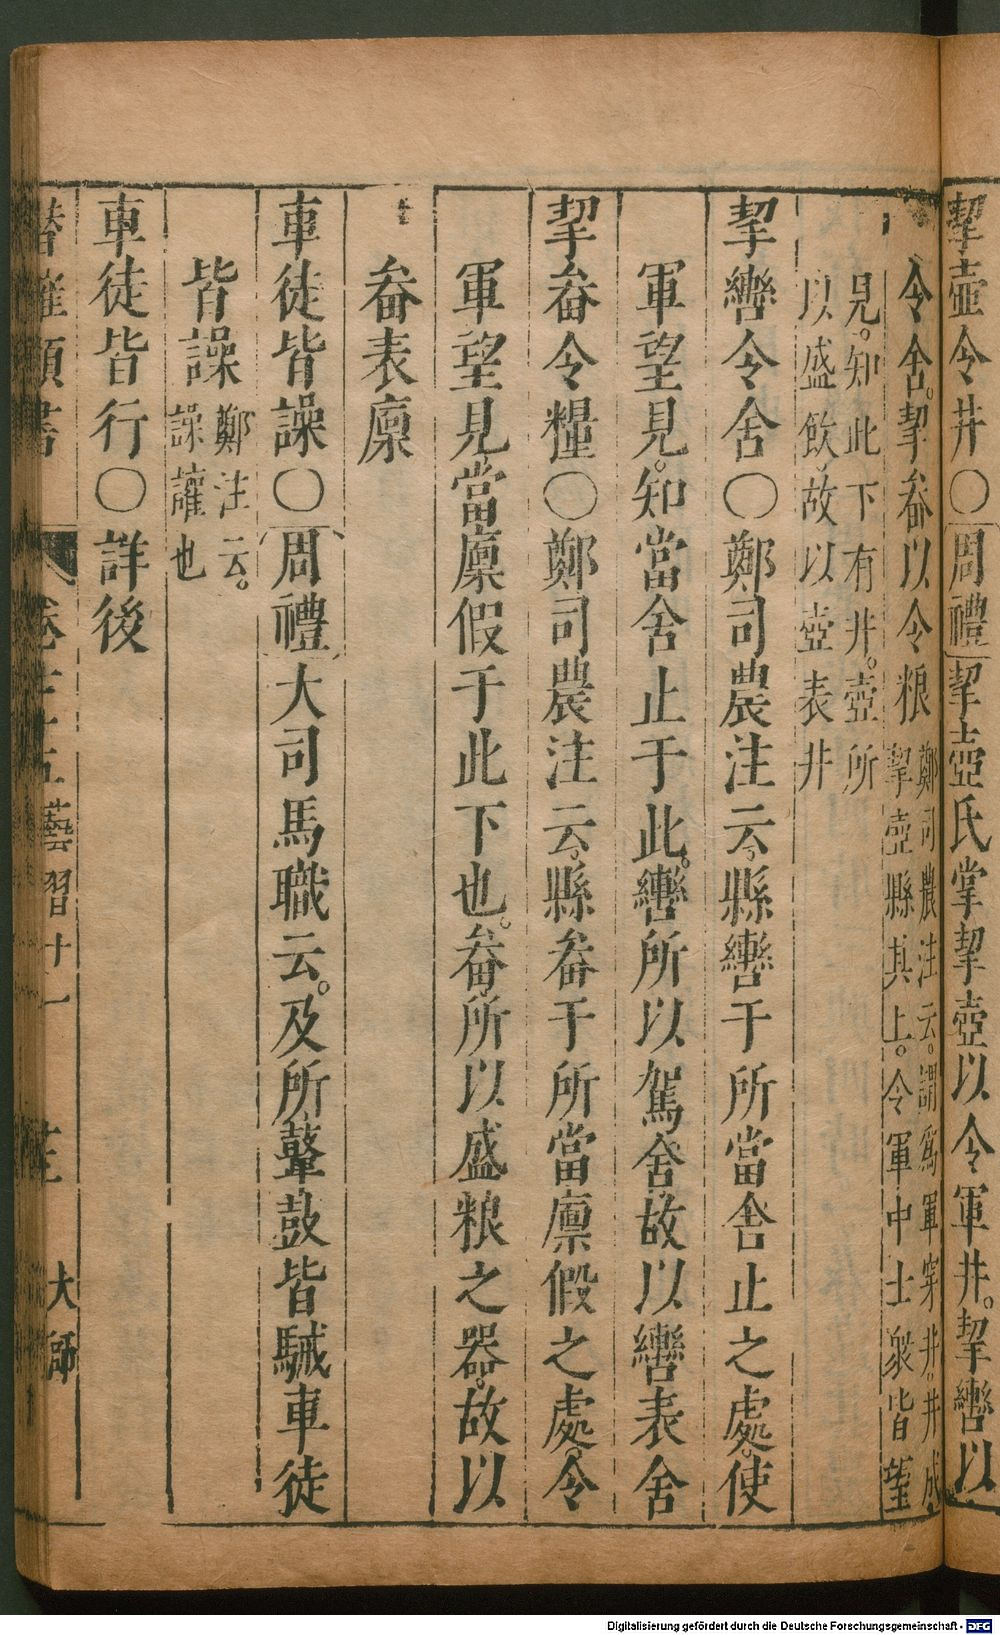 挈壺令井○周禮挈壺氏掌挈壺以令軍井。挈轡以
令舍。挈畚以令粮鄭司農注云。謂爲軍穿井。井成
挈壺縣其上。令軍中士衆皆望
見。知此下有井。壺所
以盛飲。故以壺表井
挈轡令舍○鄭司農注云。縣轡于所當舍止之處。使
軍望見。知當舍止于此。轡所以駕舍故以轡表舍
挈畚令糧○鄭司農注云。縣畚于所當廩假之處。令
軍望見當廩假于此下也。畚所以盛粮之器。故以
畚表廩
車徒皆譟○周禮大司馬職云。及所鼙鼓皆駴車徒
皆譟鄭注云。
譟讙也
車徒皆行○詳後
類書
藝習十一
大師
Digitalisierung gefördert durch die Deutsche Forschungsgemeinschaft - DFG